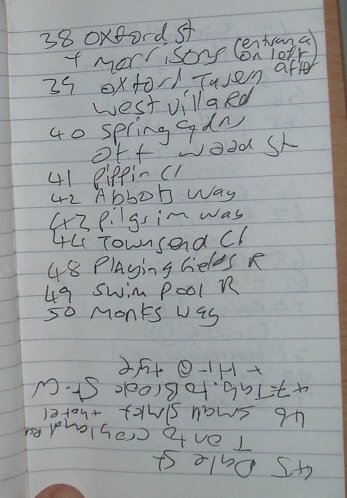 38 Oxford St
+ Morrisons (entrance
on left
39 Oxford Tavern after
West Villa Rd
40 Spring Gdn
off Wood St
41 Pippin Cl
42 Abbots Way
43 Pilgrim Way
44 Townsend Cl
48 Playing fields R
49 Swim Pool R
50 Monks Way
45 Dale St
T on to Crowland Rd
46 Small Smkt + hotel
47 to Brook St